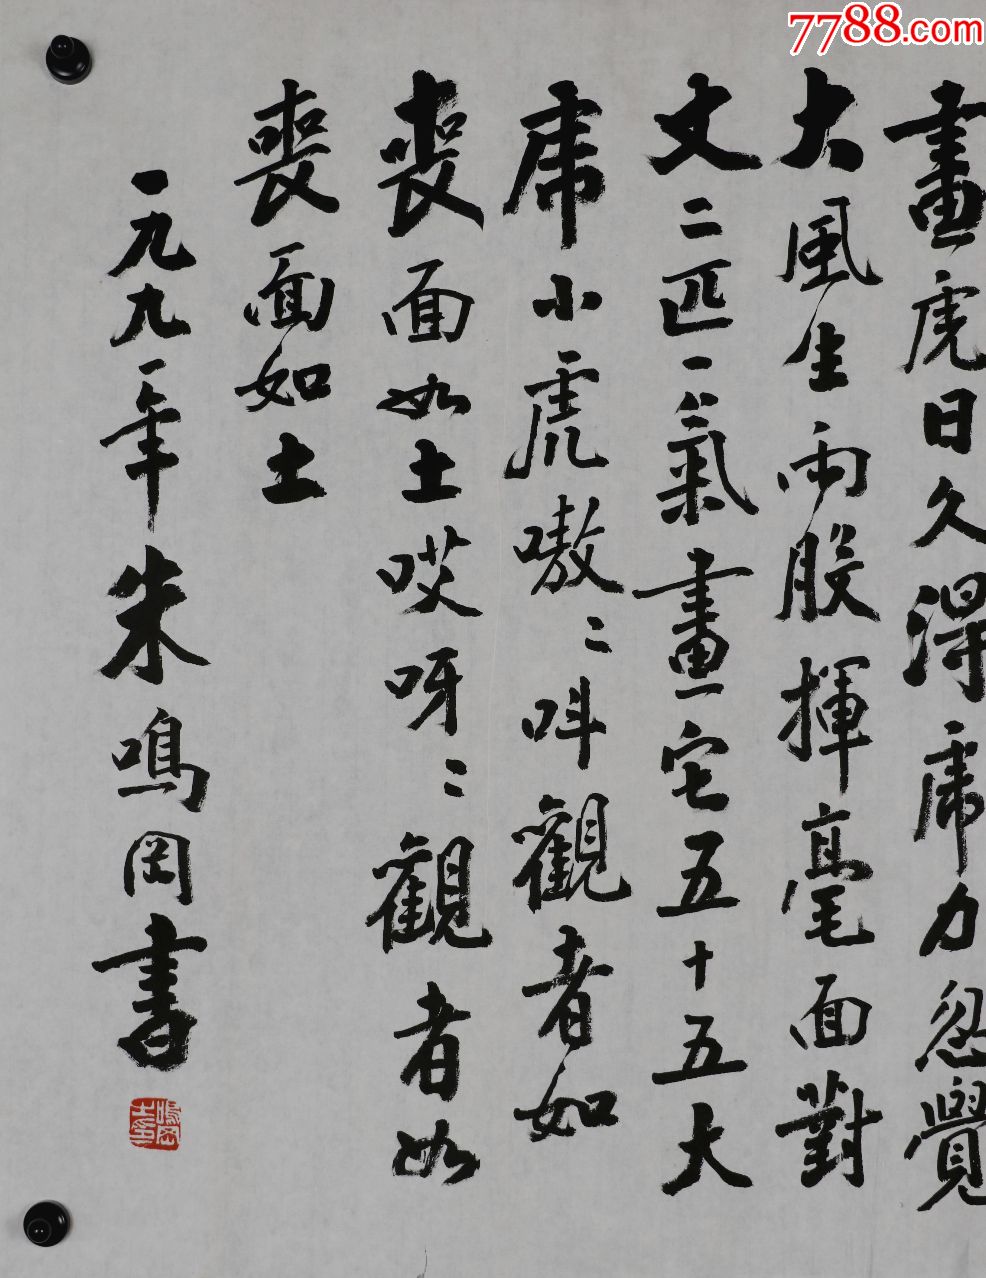 7788.com
畫虎日久得虎力忽覺
大風生兩股揮毫面對
丈二匹一氣畫它五十五大
虎小虎嗷〻叫觀者如
喪面如土哎呀〻觀者如
喪面如土
一九九一年朱鳴岡書